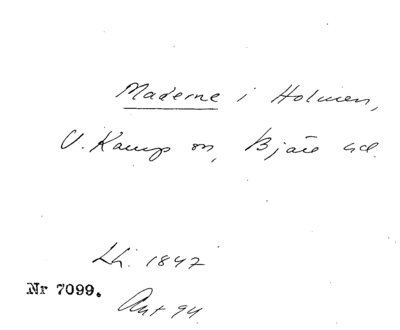 Maderne i Holmen,
V. Karup sn, Bjäre hd.
Lh. 1847
Nr 7099.
Ant 94